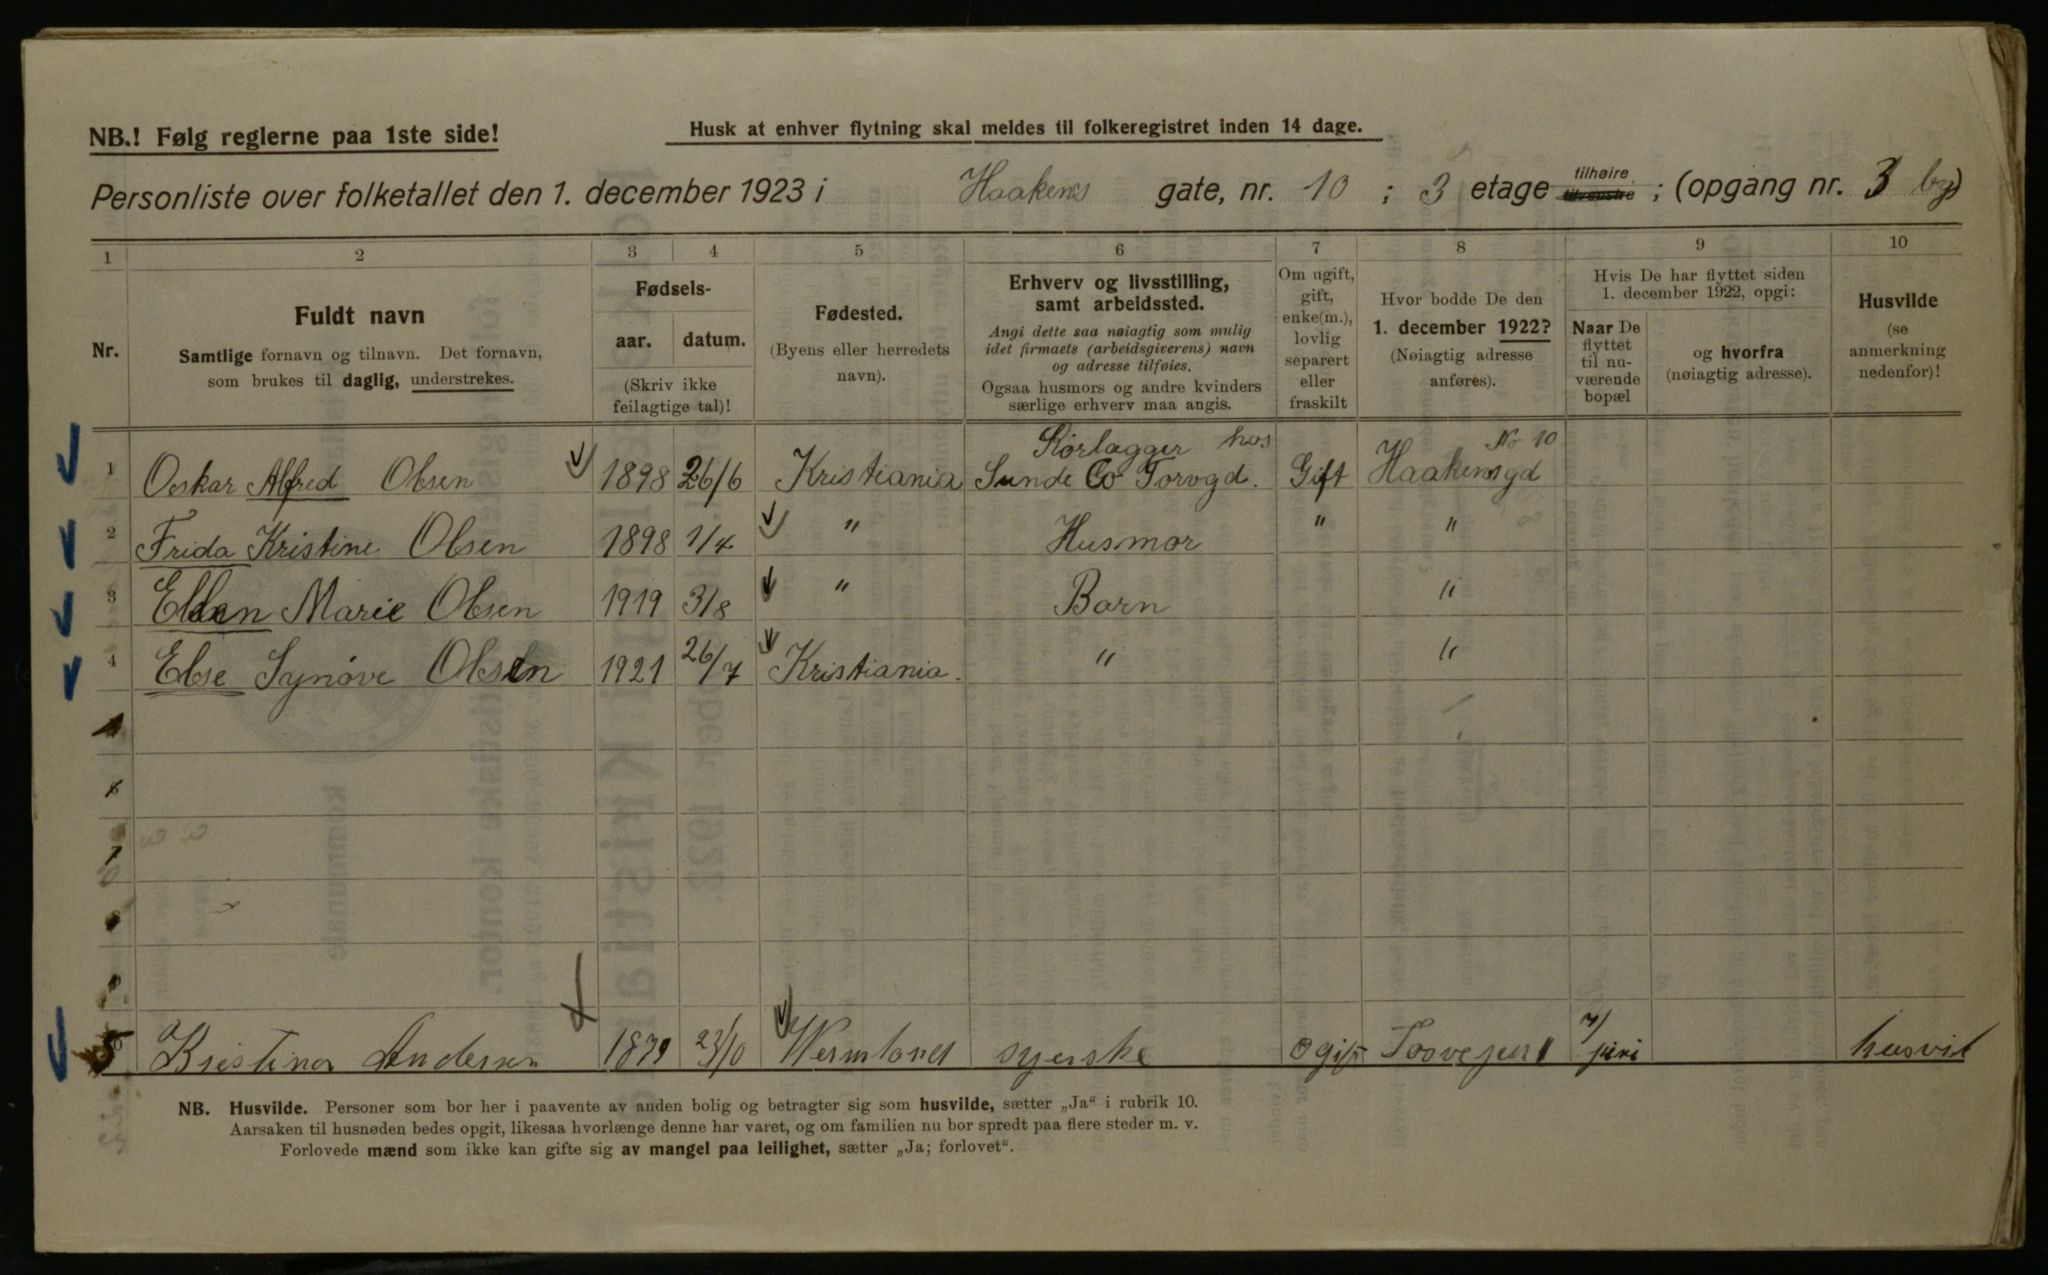 NB.! Følg reglerne paa 1ste side!
Husk at enhver flytning skal meldes til folkeregistret inden 14 dage.
Personliste over folketallet den 1. december 1923 i Haakens gate, nr. 10 ; 3 etage tilhøire tilvenstre ; (opgang nr. 3 bg)
1 2 3 4 5 6 7 8 9 10
Nr.
Fuldt navn
Samtlige fornavn og tilnavn. Det fornavn,
som brukes til daglig, understrekes.
Fødsels-
aar. datum.
(Skriv ikke
feilagtige tal)!
Fødested.
(Byens eller herredets
navn).
Erhverv og livsstilling,
samt arbeidssted.
Angi dette saa nøiagtig som mulig
idet firmaets (arbeidsgiverens) navn
og adresse tilføies.
Ogsaa husmors og andre kvinders
særlige erhverv maa angis.
Om ugift,
gift,
enke(m.),
lovlig
separert
eller
fraskilt
Hvor bodde De den
1. december 1922?
(Nøiagtig adresse
anføres).
Hvis De har flyttet siden
1. december 1922, opgi:
Naar De
flyttet
til nu-
værende
bopæl
og hvorfra
(nøiagtig adresse).
Husvilde
(se
anmerkning
nedenfor)!
Kørlægger hos No 10
1 Oskar Alfred Olsen 1898 26/6 Kristiania Sunde Co Torvgd. Gift Haakensgd
2 Frida Kristine Olsen 1898 1/4 " Husmor " "
3 Ellen Marie Olsen 1919 3/8 " Barn "
4 Else Synøve Olsen 1921 26/7 Kristiania. " "
6
7
8
9
5 Kristina Andersen 1879 23/10 Wermland syerske Ogift 7/ juni husvil
NB. Husvilde. Personer som bor her i paavente av anden bolig og betragter sig som husvilde, sætter „Ja“ i rubrik 10.
Aarsaken til husnøden bedes opgit, likesaa hvorlænge denne har varet, og om familien nu bor spredt paa flere steder m. v.
Forlovede mænd som ikke kan gifte sig av mangel paa leilighet, sætter „Ja; forlovet“.